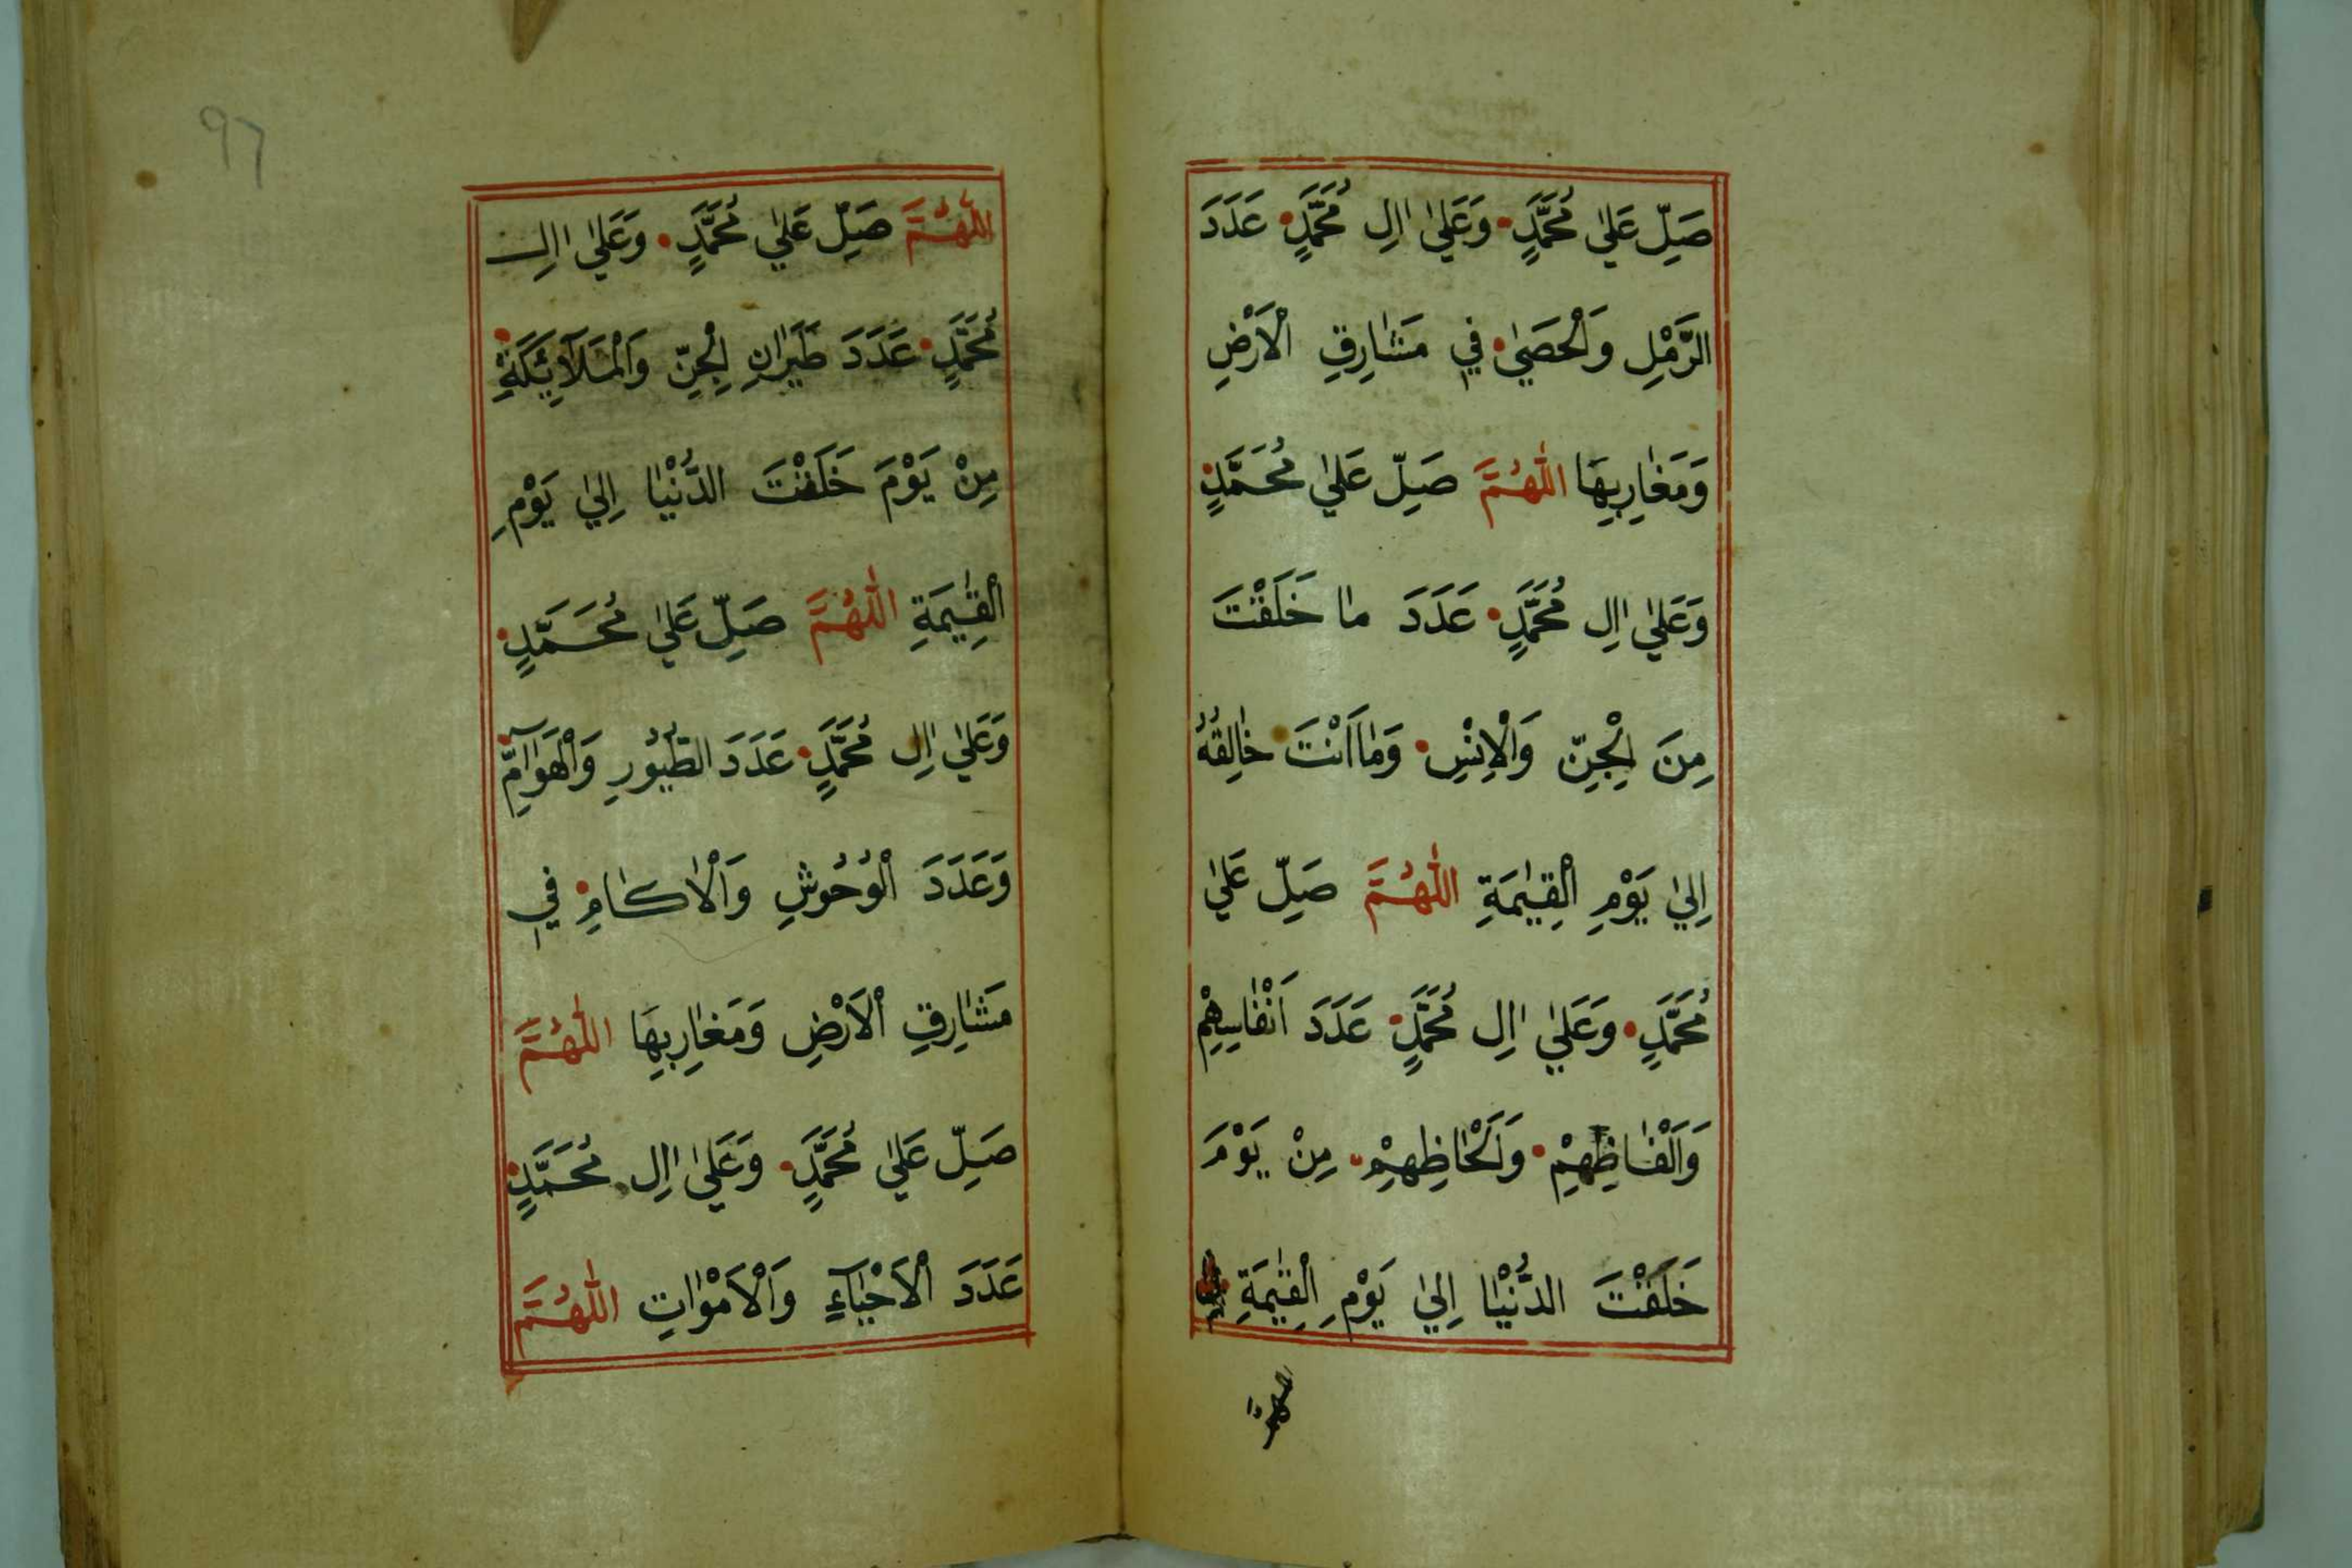 صَلِّ عَلٰي مُحَمَّدٍ وَعَلٰي اٰلِ مُحَمَّدٍ عَدَدَ
الرَّمْلِ وَالْحَصٰي فِي مَشَارِقِ الْاَرْضِ
وَمَغَارِبِهَا اَللّٰهُمَّ صَلِّ عَلٰي مُحَمَّدٍ
وَعَلٰي اٰلِ مُحَمَّدٍ عَدَدَ مَا خَلَقْتَ
مِنَ الْجِنِّ وَالْاِنْسِ وَمَا اَنْتَ خَالِقُهُ
اِلٰي يَوْمِ الْقِيٰمَةِ اَللّٰهُمَّ صَلِّ عَلٰي
مُحَمَّدٍ وَعَلٰي اٰلِ مُحَمَّدٍ عَدَدَ اَنْفَاسِهِمْ
وَاَلْفَاظِهِمْ وَاَلْحَاظِهِمْ مِنْ يَوْمَ
خَلَقْتَ الدُّنْيَا اِلٰي يَوْمِ الْقِيٰمَةِ
اَللّٰهُمَّ صَلِّ عَلٰي مُحَمَّدٍ وَعَلٰي اٰلِ
مُحَمَّدٍ عَدَدَ طَيَرَانِ الْجِنِّ وَالْمَلَآئِكَةِ
مِنْ يَوْمَ خَلَقْتَ الدُّنْيَا اِلٰي يَوْمِ
الْقِيٰمَةِ اَللّٰهُمَّ صَلِّ عَلٰي مُحَمَّدٍ
وَعَلٰي اٰلِ مُحَمَّدٍ عَدَدَ الطُّيُورِ وَالْهَوَآمِّ
وَعَدَدَ الْوُحُوشِ وَالْاٰكَامِ فِي
مَشَارِقِ الْاَرْضِ وَمَغَارِبِهَا اَللّٰهُمَّ
صَلِّ عَلٰي مُحَمَّدٍ وَعَلٰي اٰلِ مُحَمَّدٍ
عَدَدَ الْاَحْيَآءِ وَالْاَمْوَاتِ اَللّٰهُمَّ